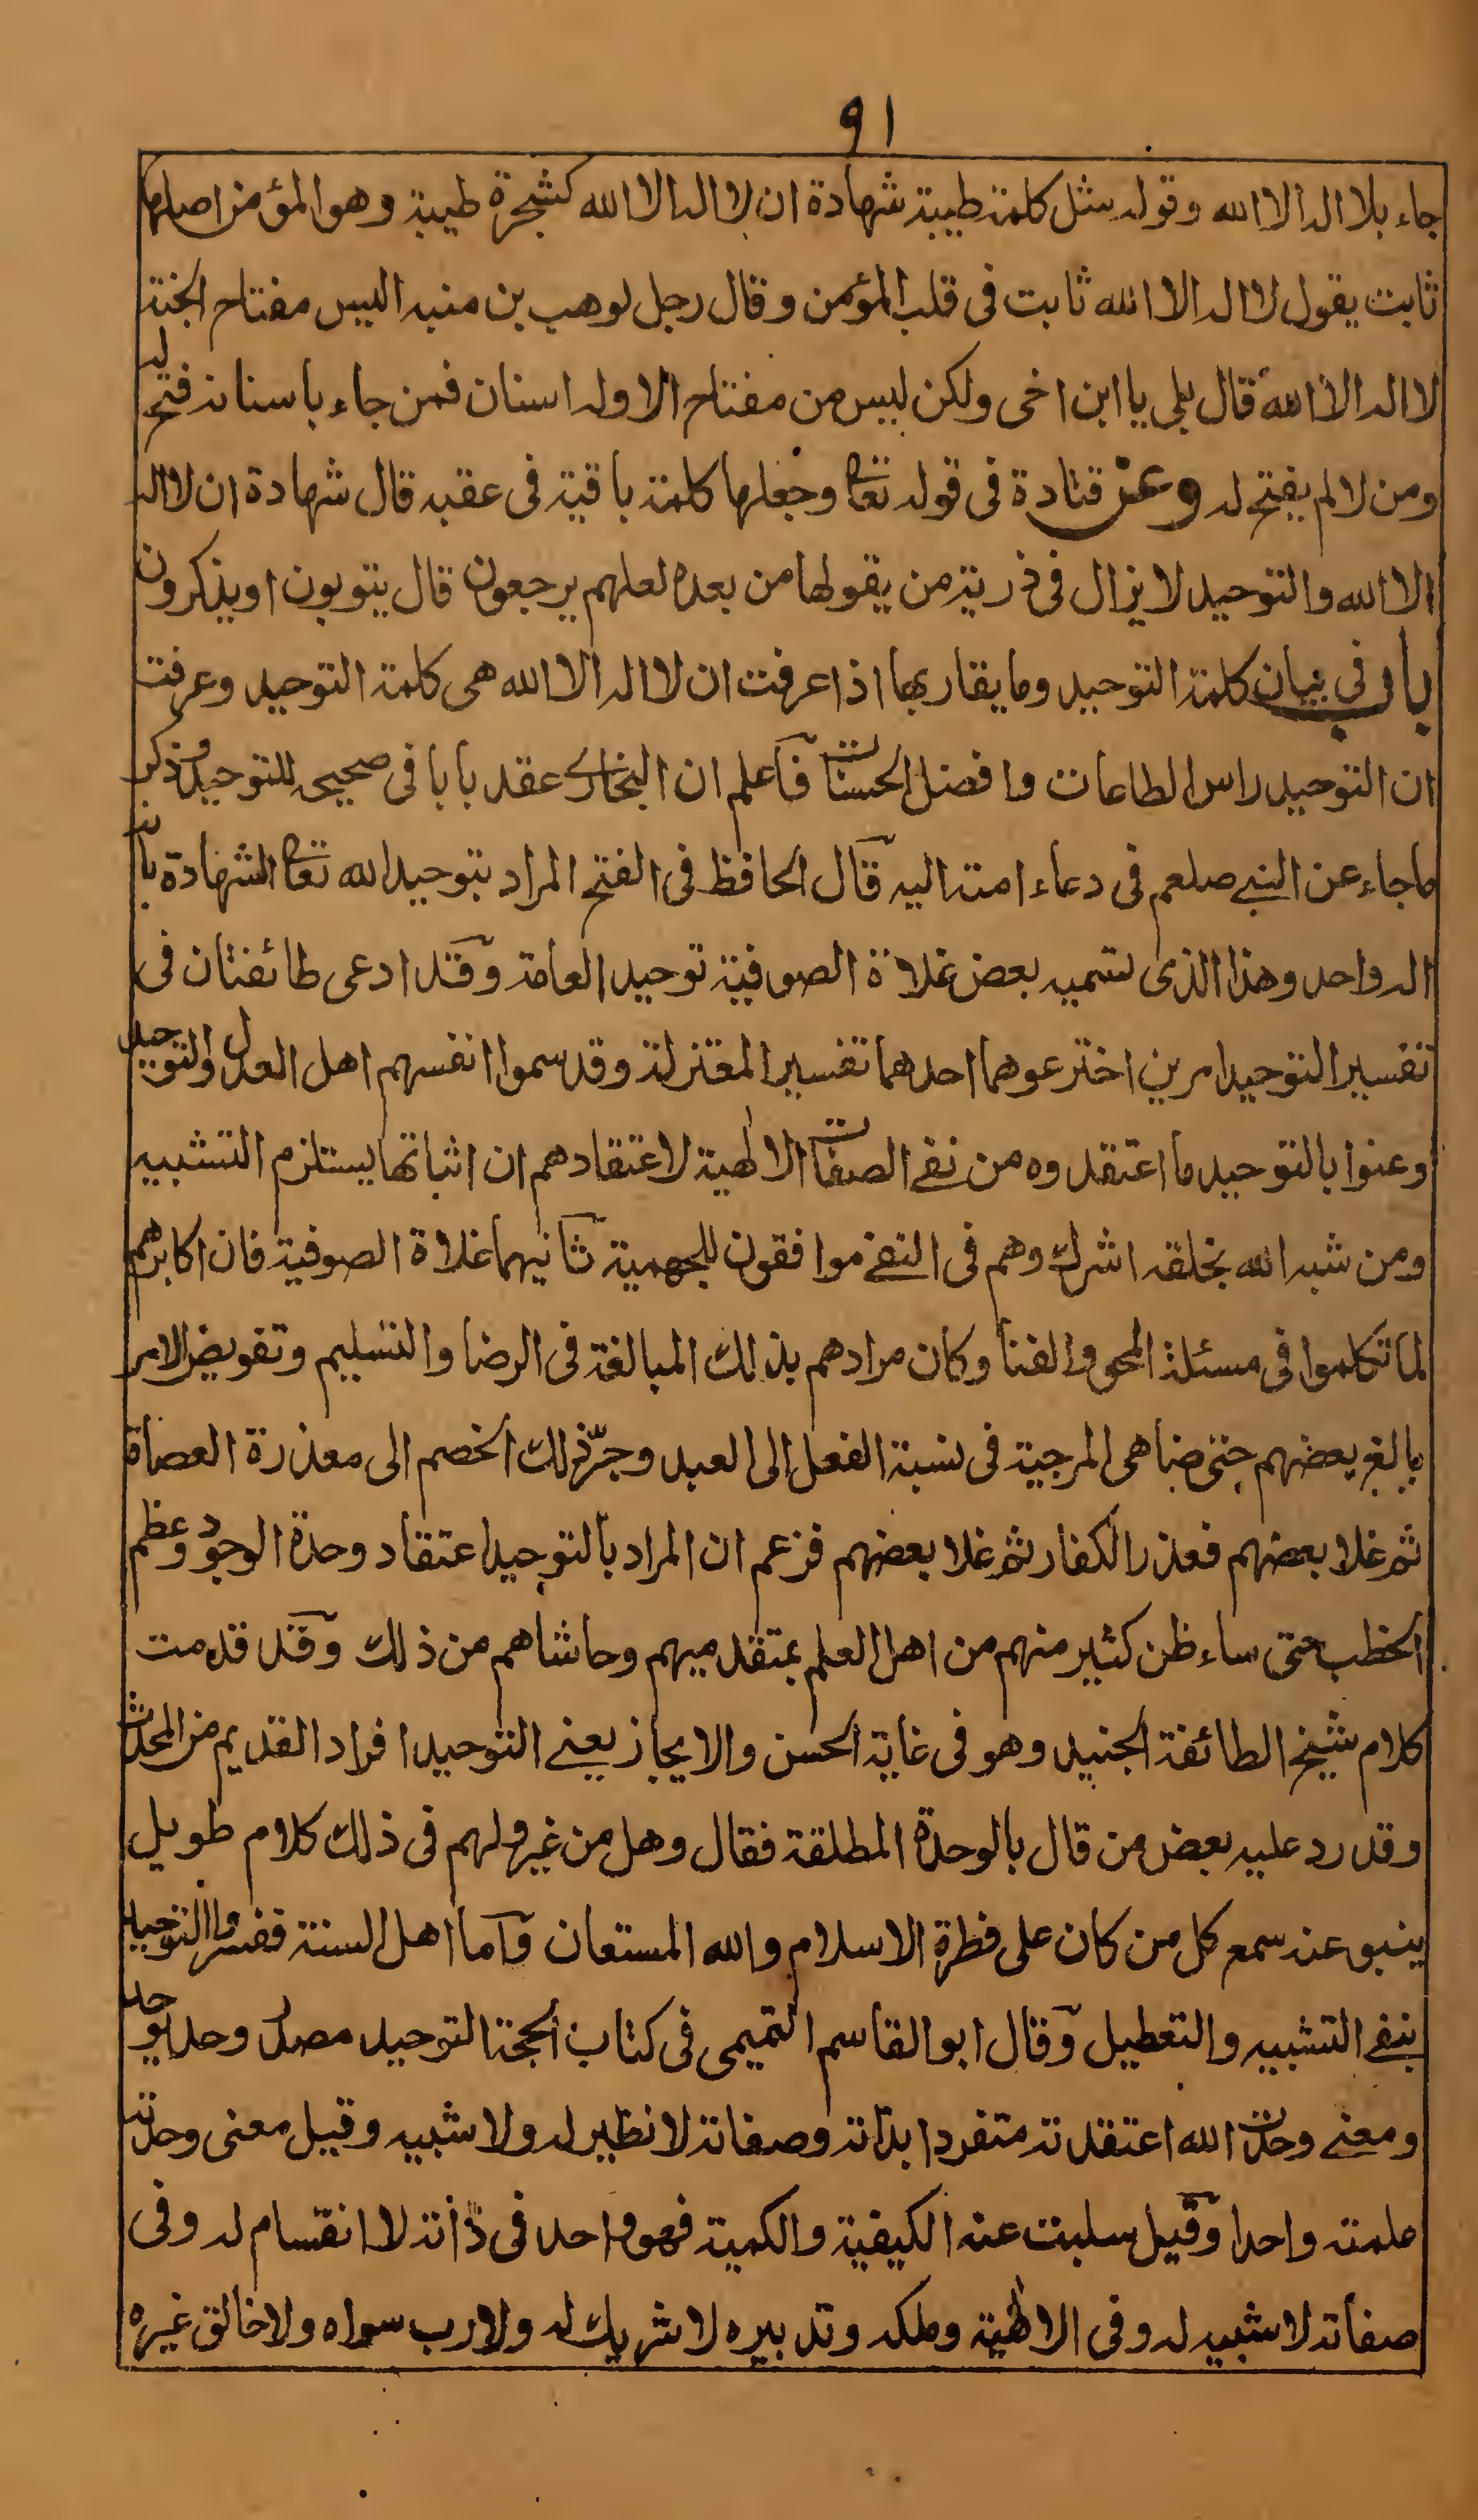 ٩١
جاء بلا اله الا الله وقوله مثل كلمة طيبة شهادة ان لا اله الا الله كشجرة طيبة وهو المؤمن اصلها
ثابت يقول لا اله الا الله ثابت فى قلب المؤمن وقال رجل لوهب بن منبه اليس مفتاح الجنة
لا اله الا الله قال بلى يا ابن اخى ولكن ليس من مفتاح الا وله اسنان فمن جاء باسنانه فتح له
ومن لا لم يفتح له وعن قتادة فى قوله تعا وجعلها كلمة باقية فى عقبه قال شهادة ان لا اله
الا الله والتوحيد لا يزال فى ذريته من يقولها من بعده لعلهم يرجعون قال يتوبون او يذكرون
باب فى بيان كلمة التوحيد وما يقاربها اذا عرفت ان لا اله الا الله هى كلمة التوحيد وعرفت
ان التوحيد راس الطاعات وافضل الحسنات فاعلم ان البخارى عقد بابا فى صحيحه للتوحيد وذكر
ما جاء عن النبى صلعم فى دعاء امته اليه قال الحافظ فى الفتح المراد بتوحيد الله تعا الشهادة بانه
اله واحد وهذا الذى تسميه بعض غلاة الصوفية توحيد العامة وقد ادعى طائفتان فى
تفسير التوحيد امرين اخترعوهما احدهما تفسير المعتزلة وقد سموا انفسهم اهل العدل والتوحيد
وعنوا بالتوحيد ما اعتقدوه من نفى الصفات الالهية لاعتقادهم ان اثباتها يستلزم التشبيه
ومن شبه الله بخلقه اشرك وهم فى النفى موافقون للجهمية ثانيهما غلاة الصوفية فان اكابرهم
لما تكلموا فى مسئلة المحو والفنا وكان مرادهم بذلك المبالغة فى الرضا والتسليم وتفويض الامر
بالغ بعضهم حتى ضاهى المرجية فى نسبة الفعل الى العبد وجرّ ذلك الخصم الى معذرة العصاة
ثم غلا بعضهم فعذر الكفار ثم غلا بعضهم فزعم ان المراد بالتوحيد اعتقاد وحدة الوجود وعظم
الخطب حتى ساء ظن كثير منهم من اهل العلم بمتقدميهم وحاشاهم من ذلك وقد قدمت
كلام شيخ الطائفة الجنيد وهو فى غاية الحسن والايجاز يعنى التوحيد افراد القديم من المحدث
وقد رد عليه بعض من قال بالوحدة المطلقة فقال وهل من غير ولهم فى ذلك كلام طويل
ينبو عنه سمع كل من كان على فطرة الاسلام والله المستعان واما اهل السنة ففسروا التوحيد
بنفى التشبيه والتعطيل وقال ابو القاسم التميمى فى كتاب الحجة التوحيد مصدر وحد يوحد
ومعنى وحدت الله اعتقدته متفردا بذاته وصفاته لا نظير له ولا شبيه وقيل معنى وحدته
علمته واحدا وقيل سلبت عنه الكيفية والكمية فهو واحد فى ذاته لا انقسام له وفى
صفاته لا شبيه له وفى الالهية وملكه وتدبيره لا شريك له ولا رب سواه ولا خالق غيره